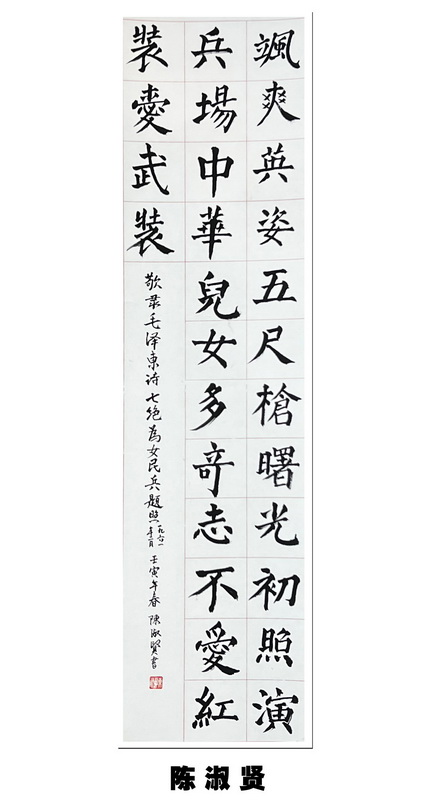 颯爽英姿五尺槍曙光初照演
兵場中華兒女多奇志不愛紅
裝愛武裝
敬录毛泽東诗七绝為女民兵題照一九六一年二月壬寅年春陳淑賢書
陈淑贤